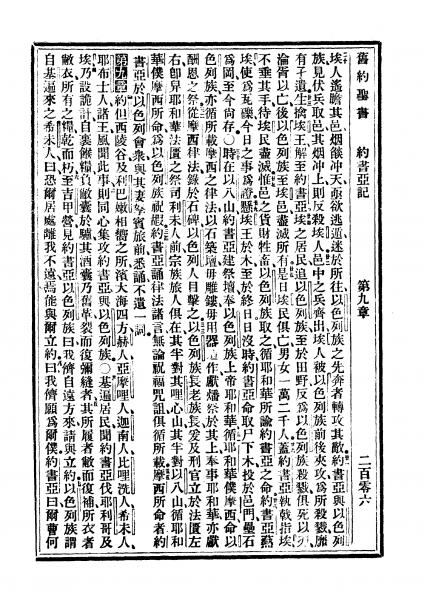 舊約聖書　約書亞記　第九章　二百零六
埃人遙瞻其邑烟燄冲天、欲逃遁、迷於所往、以色列族之先奔者、轉攻其敵、約書亞與以色列
族見伏兵取邑、其烟冲上、則反殺埃人、邑中之兵齊出、埃人被以色列族前後夾攻、爲所殺戮、靡
有孑遺、生擒埃王、解至約書亞、埃之居民追以色列族至於田野、反爲以色列族殺戮、俱死以刃、
淪胥以亡、後以色列族至埃、邑盡滅所有、是日埃民俱亡、男女一萬二千人、蓋約書亞執戟指埃、
不垂其手、待埃民盡滅、惟邑之貨財牲畜、以色列族取之、循耶和華所諭約書亞之命、約書亞燕
埃、使爲瓦礫、今日之事爲證、懸埃王於木、至於終日、日沒時、約書亞命取尸下木、投於邑門、壘石
爲岡、至今尙存、○時在以八山、約書亞建祭壇、奉以色列族上帝耶和華、循耶和華僕摩西命以
色列族、亦循所載摩西之律法、以石築壇、毋雕鏤、毋用器、作獻燔祭於其上、奉事耶和華、亦獻
酬恩之祭、從摩西律法錄於石碑、以色列人目擊之、以色列族長老、族長、爰及刑官、立於法匱左
右、卽舁耶和華法匱之祭司利未人前、宗族旅人俱在、其半對其哩心山、其半對以八山、循耶和
華僕摩西所命、爲以色列族祝嘏、約書亞誦律法諸言、無論祝福咒詛、俱循所載、摩西所命者、約
書亞於以色列會衆、與其妻孥賓旅前、悉誦不遺一詞、
第九章 約但西、陵谷及利巴嫩相嚮之所、濱大海四方、赫人、亞摩哩人、迦南人、比哩洗人、希未人、
耶布士人、諸王風聞此事、則同心集攻約書亞與以色列族、○基遍居民聞約書亞伐耶利哥及
埃、乃設詭計、自裹餱糧、負敝囊於驢、其酒囊乃舊革裂而復彌縫者、其所履者敝而復補、所衣者
敝衣、所有之糧、乾而朽、至吉甲營見約書亞、以色列族曰、我儕自遠方來、請與立約、以色列族謂
自基遍來之希未人曰、恐爾居處離我不遠、焉能與爾立約、曰、我儕願爲爾僕、約書亞曰、爾曹何